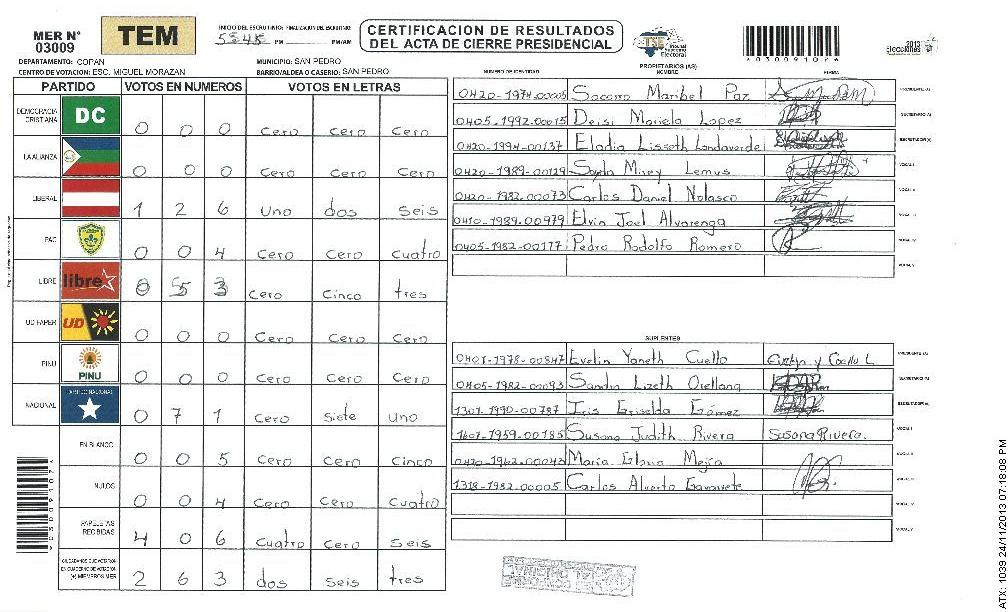 MER N° 03009
TEM
INICIO DEL ESCRUTINIO: FINALIZACION DEL ESCRUTINIO:
PM PM/AM
CERTIFICACION DE RESULTADOS
DEL ACTA DE CIERRE PRESIDENCIAL
TSE Tribunal Supremo Electoral
2013 Elecciones
DEPARTAMENTO: COPAN MUNICIPIO: SAN PEDRO
CENTRO DE VOTACION: ESC. MIGUEL MORAZAN BARRIO/ALDEA O CASERIO: SAN PEDRO
PARTIDO VOTOS EN NUMEROS VOTOS EN LETRAS
DEMOCRACIA CRISTIANA DC 0 0 0 Cero cero Cero
LA ALIANZA 0 0 0 Cero Cero Cero
LIBERAL 1 2 6 Uno dos Seis
PAC 0 0 4 Cero Cero Cuatro
LIBRE libre 0 5 3 Cero Cinco tres
UD FAPER UD 0 0 0 Cero Cero Cero
PINU PINU 0 0 0 Cero Cero Cero
NACIONAL 0 7 1 Cero Siete Uno
EN BLANCO 0 0 5 Cero Cero Cinco
NULOS 0 0 4 Cero Cero Cuatro
PAPELETAS RECIBIDAS 4 0 6 Cuatro Cero Seis
CIUDADANOS QUE VOTARON EN CUADERNO DE VOTACION (+) MIEMBROS MER 2 6 3 dos Seis tres
PROPIETARIOS (AS)
NUMERO DE IDENTIDAD NOMBRE FIRMA
0420-1974-00005 Socorro Maribel Paz PRESIDENTE (A)
0405-1992-00015 Deisi Mariela Lopez SECRETARIO (A)
0420-1994-00137 Eladia Lisseth Landaverde ESCRUTADOR (A)
0420-1989-00129 Mirey Lemus VOCAL I
0420-1982-00073 Carlos Daniel Nolasco VOCAL II
0410-1989-00979 Elvin Joel Alvarenga VOCAL III
0405-1982-00177 Pedro Rodolfo Romero VOCAL IV
VOCAL V
SUPLENTES
0401-1978-00847 Evelin Yaneth Cuello PRESIDENTE (A)
0405-1982-00093 Sandra Lizeth Orellana SECRETARIO (A)
1301-1990-00787 Iris Griselda Gómez ESCRUTADOR (A)
1607-1959-00185 Susana Judith Rivera Susana Rivera. VOCAL I
0420-1962-00043 Maria Elena Mejia VOCAL II
1318-1982-00005 Carlos Alverto VOCAL III
VOCAL IV
VOCAL V
ATX: 1039 24/11/2013 07:18:08 PM